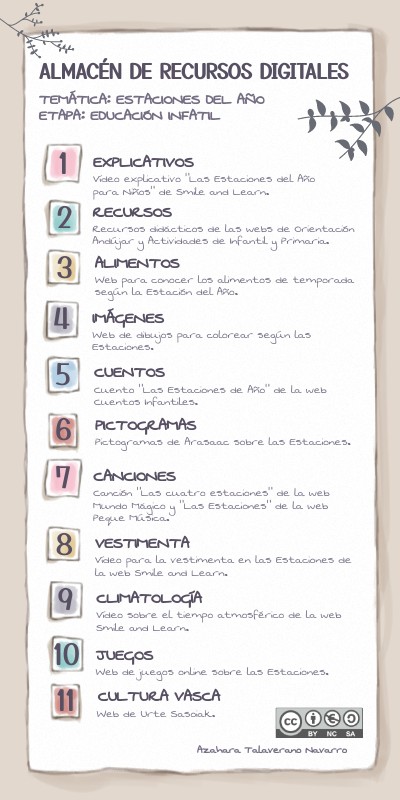 ALMACÉN DE RECURSOS DIGITALES
TEMÁTICA: ESTACIONES DEL AÑO
ETAPA: EDUCACIÓN INFATIL
1 EXPLICATIVOS
Vídeo explicativo "Las Estaciones del Año
para Niños" de Smile and Learn.
2 RECURSOS
Recursos didácticos de las webs de Orientación
Andújar y Actividades de Infantil y Primaria.
3 ALIMENTOS
Web para conocer los alimentos de temporada
según la Estación del Año.
4 IMÁGENES
Web de dibujos para colorear según las
Estaciones.
5 CUENTOS
Cuento "Las Estaciones de Año" de la web
Cuentos Infantiles.
6 PICTOGRAMAS
Pictogramas de Arasaac sobre las Estaciones.
7 CANCIONES
Canción "Las cuatro estaciones" de la web
Mundo Mágico y "Las Estaciones" de la web
Peque Música.
8 VESTIMENTA
Vídeo para la vestimenta en las Estaciones de
la web Smile and Learn.
9 CLIMATOLOGÍA
Vídeo sobre el tiempo atmosférico de la web
Smile and Learn.
10 JUEGOS
Web de juegos online sobre las Estaciones.
11 CULTURA VASCA
Web de Urte Sasoiak.
cc BY NC SA
Azahara Talaverano Navarro